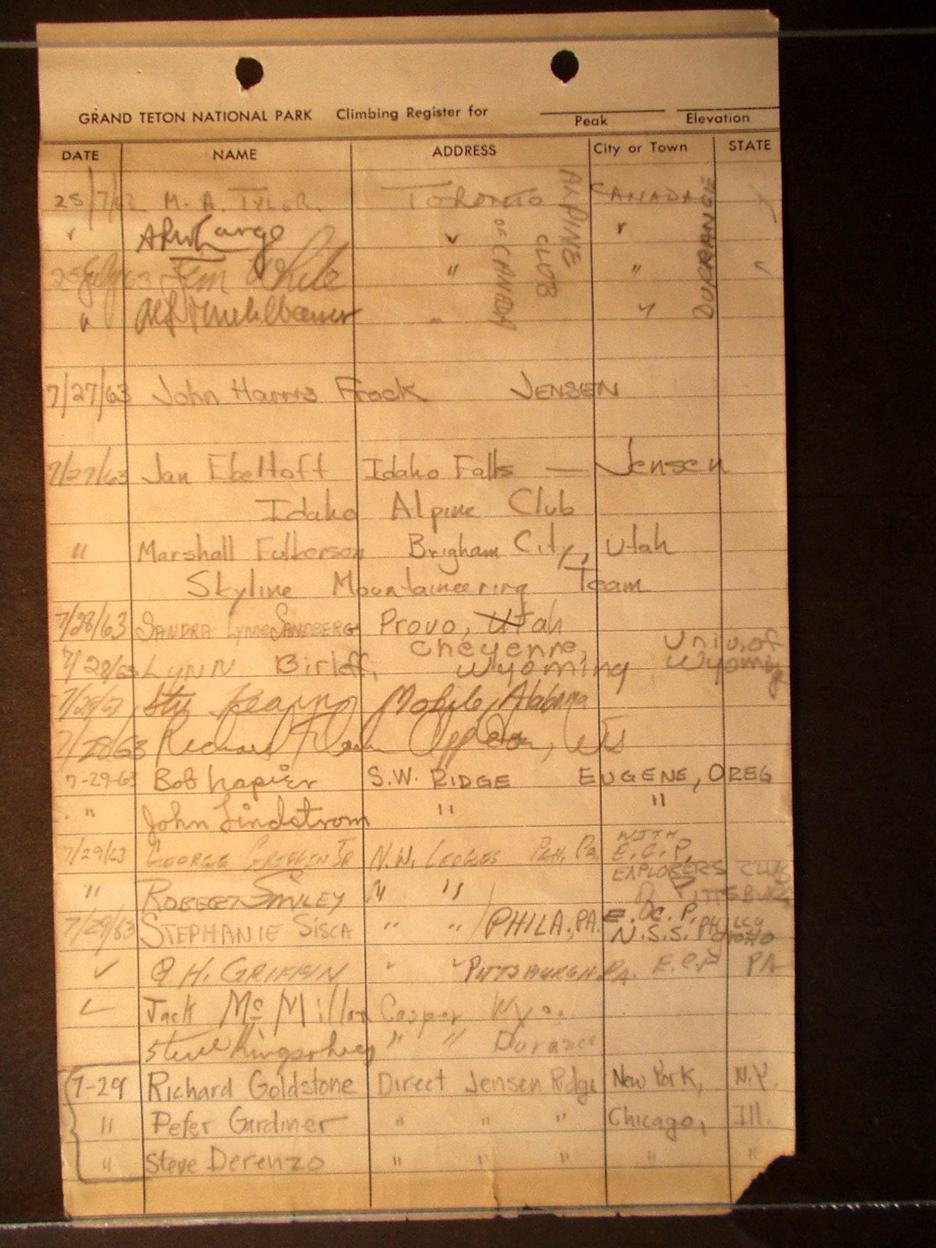 GRAND TETON NATIONAL PARK Climbing Register for
Peak Elevation
DATE NAME ADDRESS City or Town STATE
25/7/63 M. A. TYLER. TORONTO CANADA
ALPINE CLUB OF CANADA
DURRANCE
" "
25 July 63 Jim White " "
"
7/27/63 John Harris Frock JENSEN
7/27/63 Jan Ebeltoft Idaho Falls — Jensen
Idaho Alpine Club
" Marshall Fulkerson Brigham City, Utah
Skyline Mountaineering Team
7/28/63 SANDRA LYNNE SANDBERG Provo, Utah
7/28/63 LYNN Cheyenne, Wyoming Univ. of Wyoming
Mobile, Alabama
7/28/63 Richard
7-29-63 Bob Napier S.W. RIDGE EUGENE, OREG
" John Lindstrom " "
7/29/63 GEORGE GRIFFIN JR N.W. LEDGES PGH, PA. WITH E.C.P.
EXPLORERS CLUB
" ROBERT SMILEY " " OF PITTSBURG
7/29/63 STEPHANIE SISCA " " PHILA., PA. E. OC. P.
N.S.S.
G H. GRIFFIN " " PITTSBURGH, PA. E.C.P PA
Jack McMillan Casper Wyo.
Steve " "
7-29 Richard Goldstone Direct Jensen Ridge New York, N.Y.
" Peter Gardiner " " " Chicago, Ill.
" Steve Derenzo " " " " "